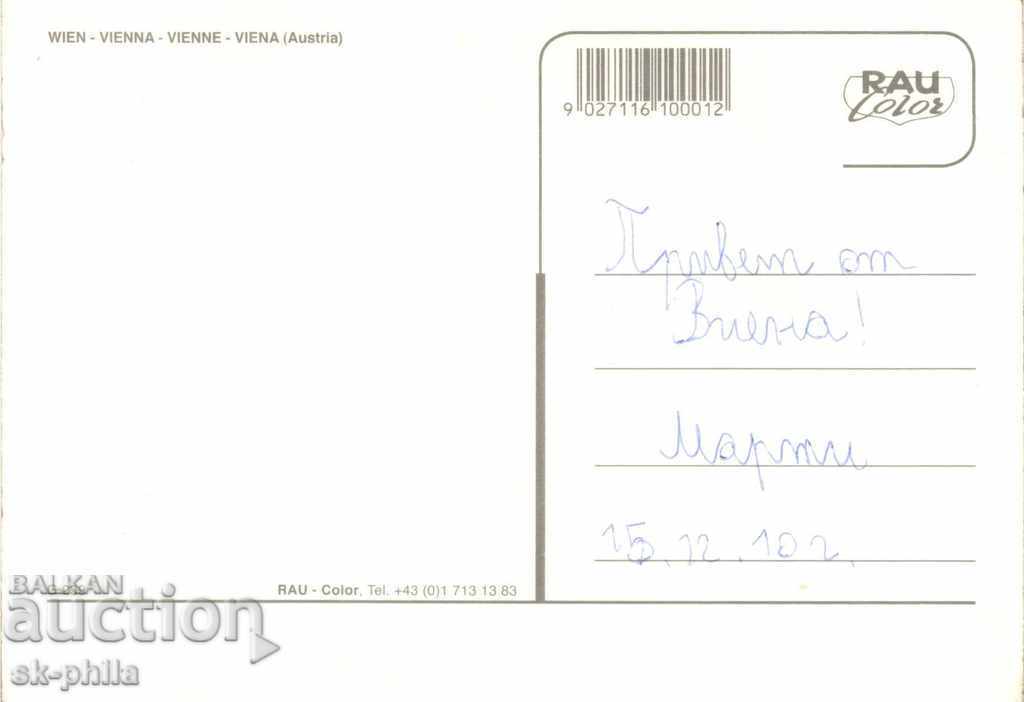 WIEN - VIENNA - VIENNE - VIENA (Austria)
9 027116 100012
RAU
Color
Привет от
Виена!
Марти
15.12.10 г.
RAU - Color, Tel. +43 (0)1 713 13 83
BALKAN
auction
sk-phila